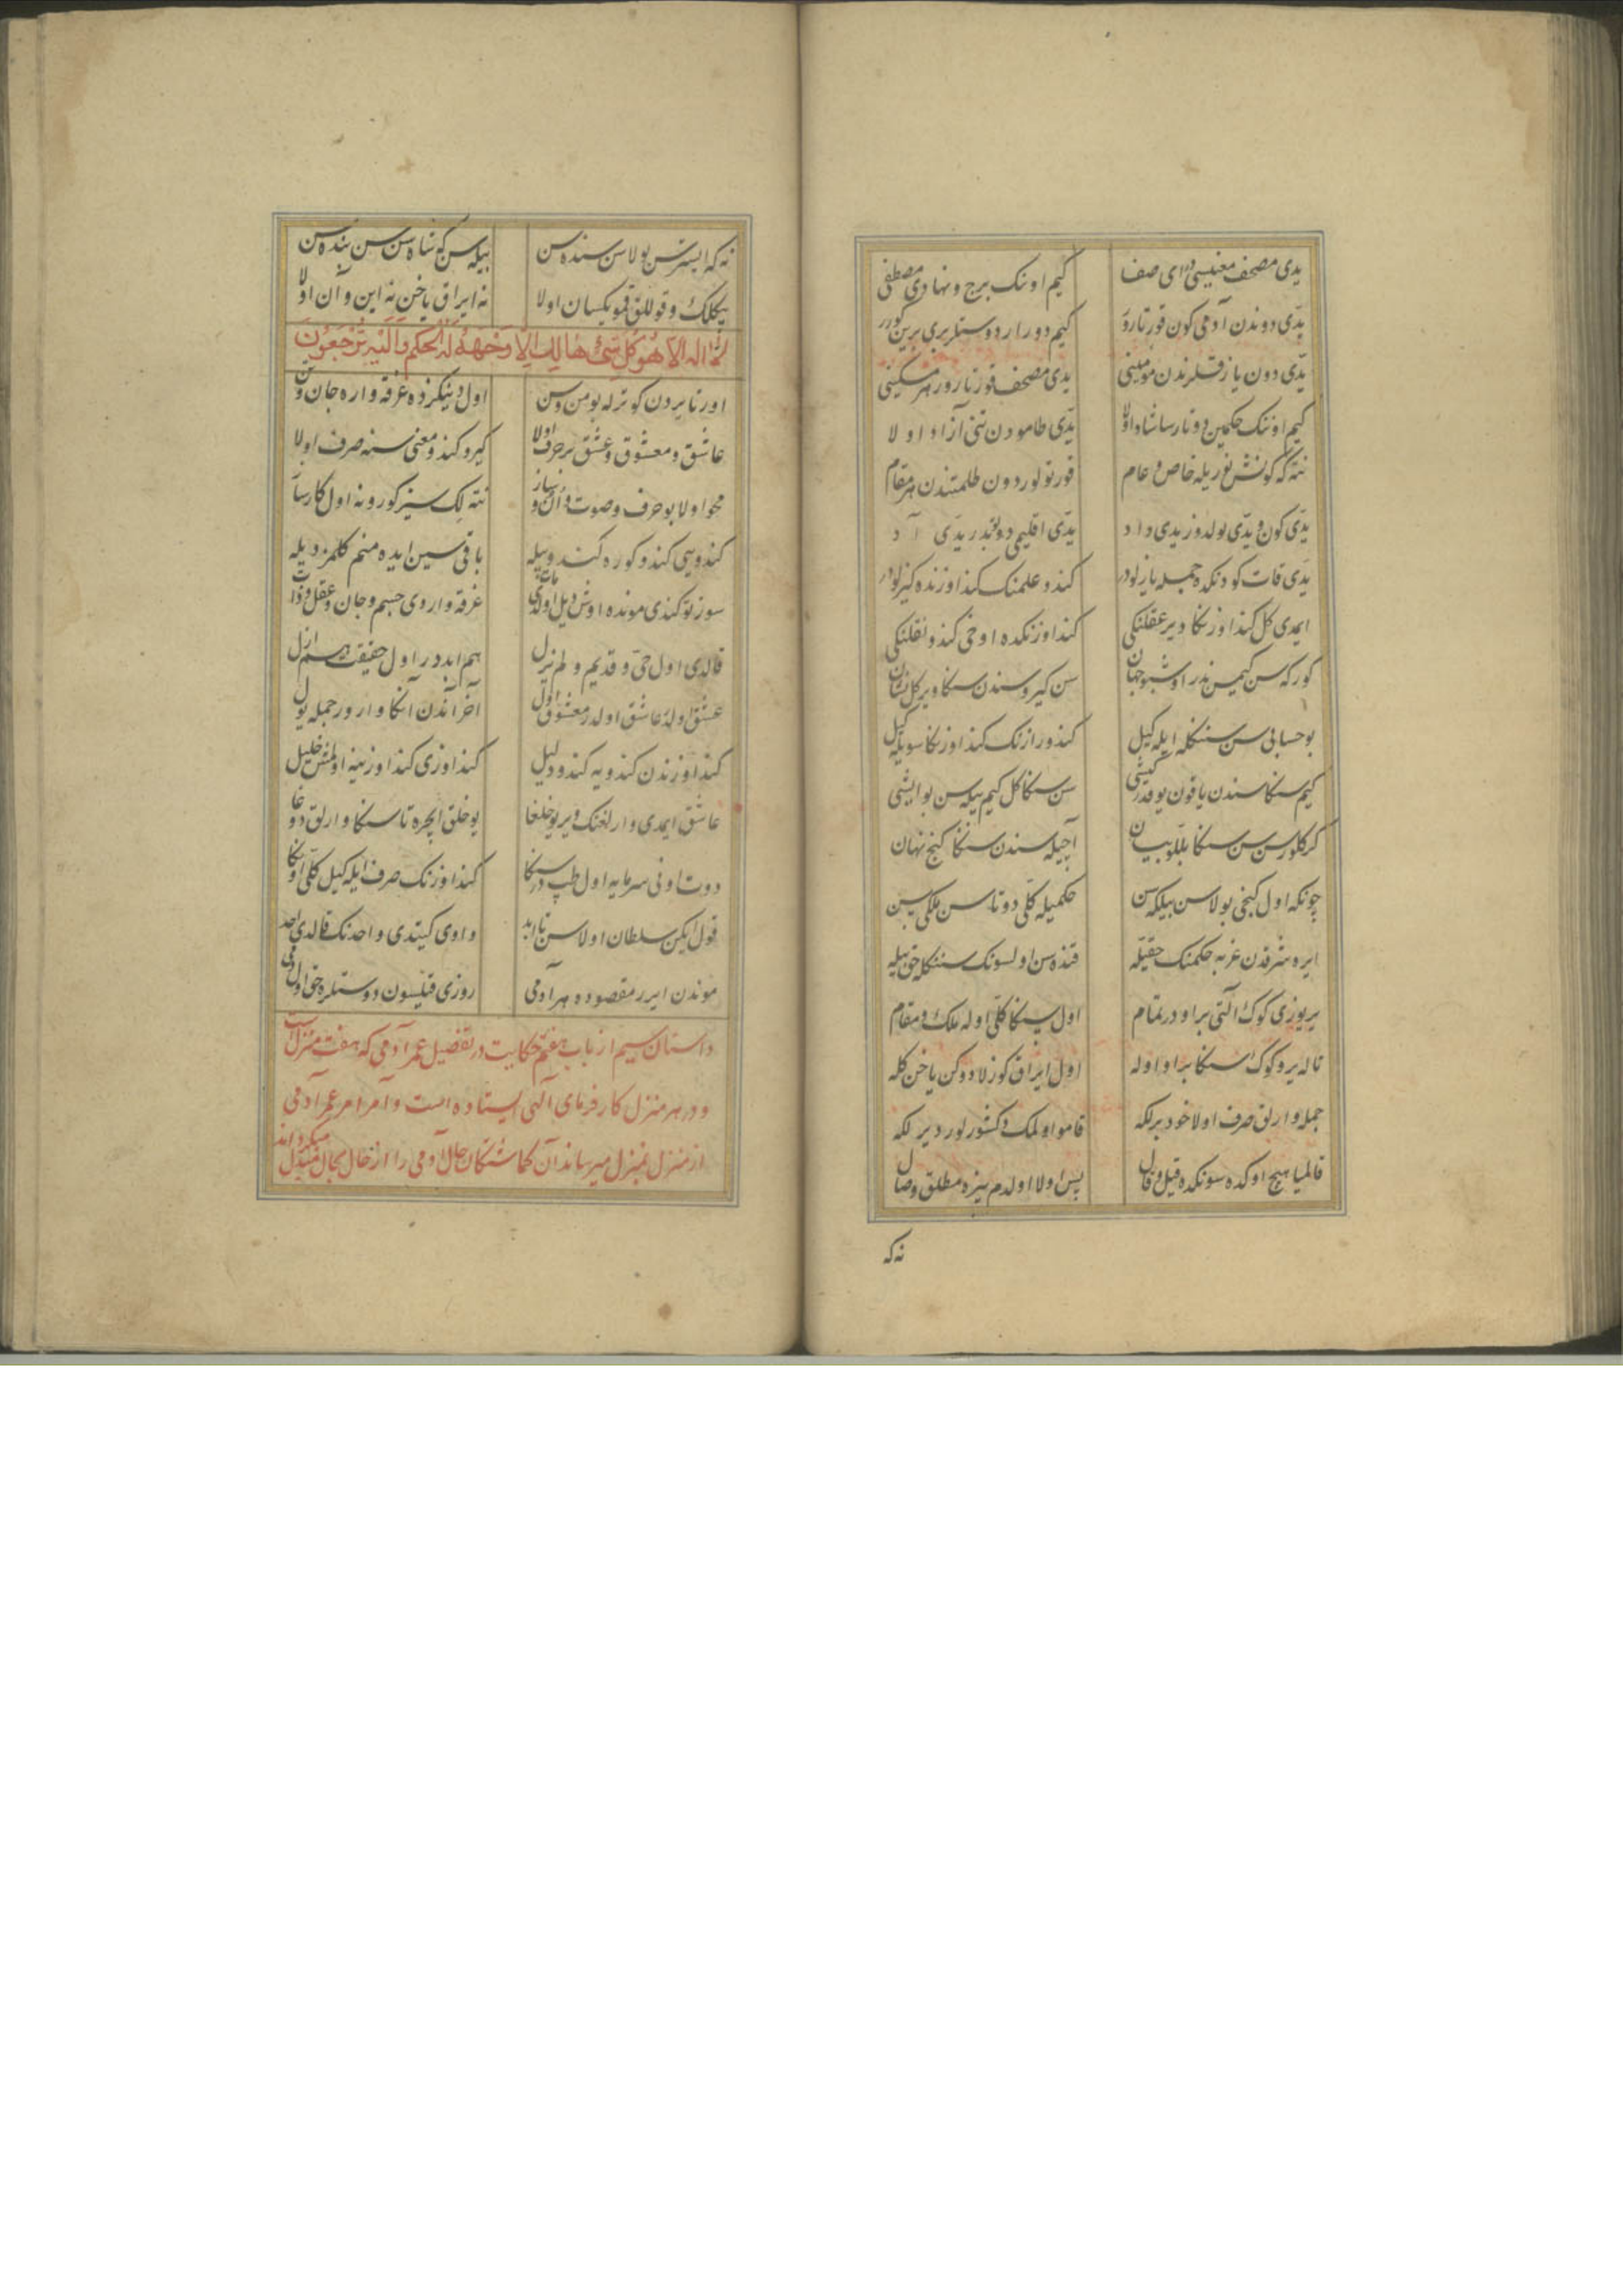 یدی مصحف معنیسی در ای صف کیم اونک برج و نهادی مصطفی
یدی دوندن آدمی کون قورتارور کیم دورار دوستلر بری برین کورر
یدی دون یازقلرندن مومینی یدی مصحف قورتارور هر مسکینی
کیم اوننک حکمین دوتارسا شاد اولا یدی طامودن تنی آزاد اولا
نته که کونش نوریله خاص و عام قورتولور دون ظلمتندن هر مقام
یدی کون و یدی یولدوز یدی داد یدی اقلیمی دوتبدر یدی آد
یدی قات کودنکده جمله یازلودر کند و علمنک کنداوزنده کیزلودر
ایمدی کل کنداوزنکا دیر عقلنکی کنداوزنکده اوخی کندو نقلنکی
کور که سن کیمسن ندر اوشبو جهان سن کیرو سندن سنکا ویرکل نشان
بو حسابی سن سننکله ایله کیل کندو رازنک کنداوزنکا سویله کیل
کیم سنکا سندن یاقون یوقدر کیشی سن سنکا کل کیم بیله سن بو ایشی
کرکلورسن سن سنکا بللو بیان آچیله سندن سنکا کنج نهان
چونکه اول کنجی بولاسن بیلکه سن حکمیله کلی دوتاسن ملکی سن
ایره شرقدن غربه حکمنک حقیله قنده سن اولسونک سننکله حق بیله
یریوزی کوک آلتی براودر تمام اول سنکا کلی اوله ملک و مقام
تا له یر و کوک سنکا براو اوله اول ایراق کوزلادوکن یاخن کله
جمله وارلق صرف اولا خود برلکه قامو اولمک و کشور لور دیرلکه
قالمیا هیچ اوکده سونکده قیل و قال پس اولا اولدم بیزه مطلق وصال
نه که
نه که ایسترسن بولاسن سنده سن بیله سن که شاه سن سن بنده سن
بیکلک و قوللق قمو یکسان اولا نه ایراق یاخن نه این و آن اولا
لا اله الا هو کل شئ هالک الا وجهه له الحکم والیه ترجعون
اورتا یردن کوترله بو من و سن اول دینکزده غرقه واره جان و تن
عاشق و معشوق و عشق بر حرف اولا کیرو کندو معنی سنه صرف اولا
محو اولا بو حرف و صوت و آن و ساز نته لک سیز کورونه اول کارساز
کندوسی کندو کوره کندوییله باقی سین ایده منم کلمز دیله
سوز توکندی مونده اوش دیل اولدی مات غرقه واروی جسم و جان و عقل و ذات
قالدی اول حی و قدیم و لم یزل هم ابددر اول حقیقت هم ازل
عشق اولدر عاشق اولدر معشوق اول آخر آندن آنکا وارور جمله یول
کنداوزندن کندویه کندو دلیل کنداوزی کنداوزینه اولمش خلیل
عاشق ایمدی وارلغنک ویر یوخلغا یوخلق ایچره تا سنکا وارلق دوغا
دوت اونی سرمایه اول طپدر سنکا کنداوزنک صرف ایله کیل کلی اونکا
قول ایکن سلطان اولاسن تا ابد و اوی کیتدی واحدنک قالدی احد
موندن ایرر مقصوده هر آدمی روزی قیلسون دوستلره حق اول دمی
داستان سیم از باب هفتم حکایت در تفصیل عمر آدمی که هفت منزلست
و در هر منزل کارفرمای آلتی ایستاده است و آمر امر عمر آدمی
از منزل بمنزل میرساند آن کماشتکان حال آدمی را از حال بحال مبدل میکرداند